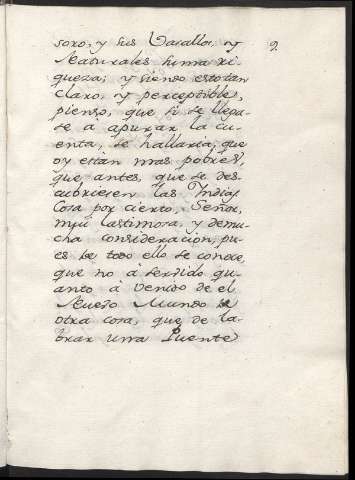 soro, y sus Vasallos, y
Naturales suma ri-
queza; y siendo esto tan
claro, y perceptible,
pienso, que si se llega-
se à apurar la cu-
enta, se hallaria, que
oy estàn mas pobres,
que antes, que se des-
cubriesen las Indias
Cosa por cierto, Señor,
mui lastimosa, y de mu-
cha consideracion, pu-
es de todo ello se conoce,
que no à servido qu-
anto à venido de el
Nuevo Mundo de
otra cosa, que de la-
brar una Puente